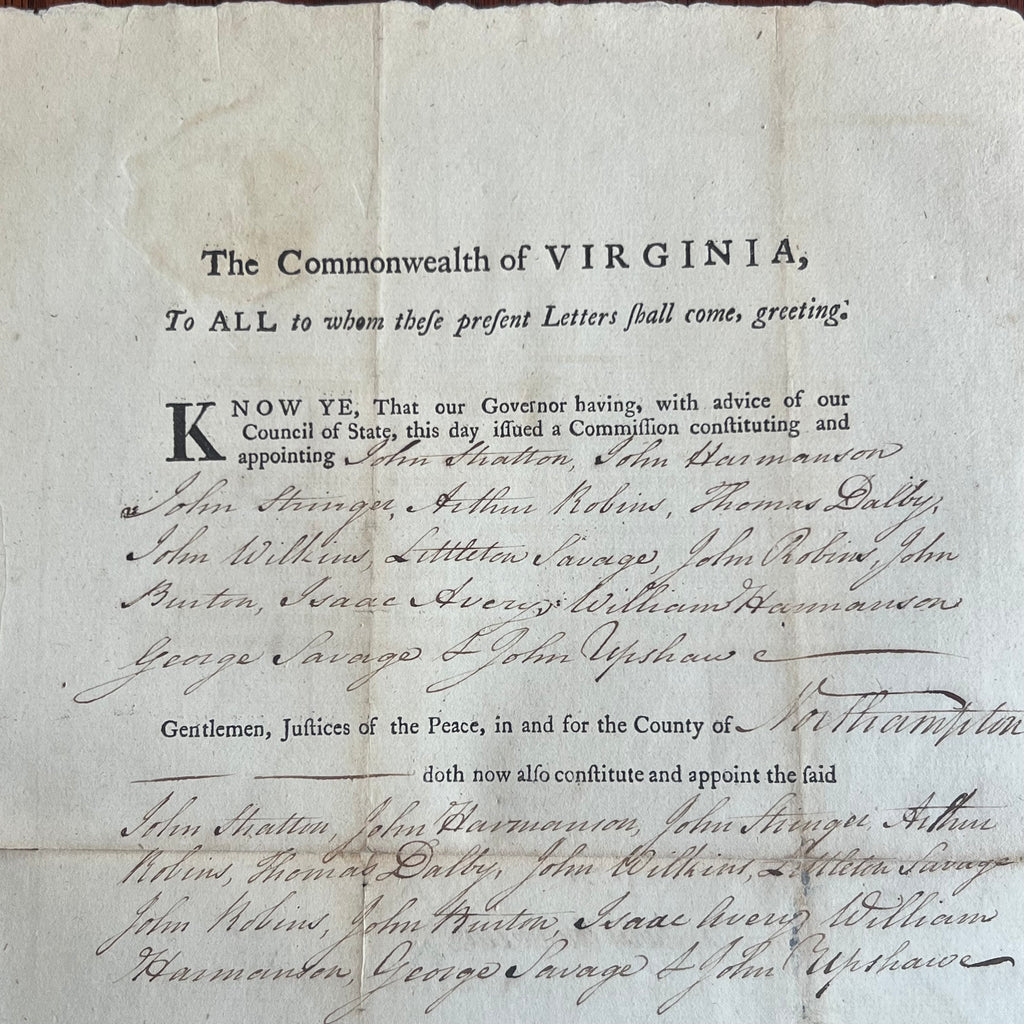 The Commonwealth of VIRGINIA,
To ALL to whom theſe preſent Letters ſhall come, greeting:
KNOW YE, That our Governor having, with advice of our
Council of State, this day iſſued a Commiſſion conſtituting and
appointing John Stratton, John Harmanson
John Stringer, Arthur Robins, Thomas Dalby,
John Wilkins, Littleton Savage, John Robins, John
Burton, Isaac Avery, William Harmanson
George Savage & John Upshaw
Gentlemen, Juſtices of the Peace, in and for the County of Northampton
doth now alſo conſtitute and appoint the ſaid
John Stratton, John Harmanson, John Stringer, Arthur
Robins, Thomas Dalby, John Wilkins, Littleton Savage
John Robins, John Burton, Isaac Avery William
Harmanson, George Savage & John Upshaw